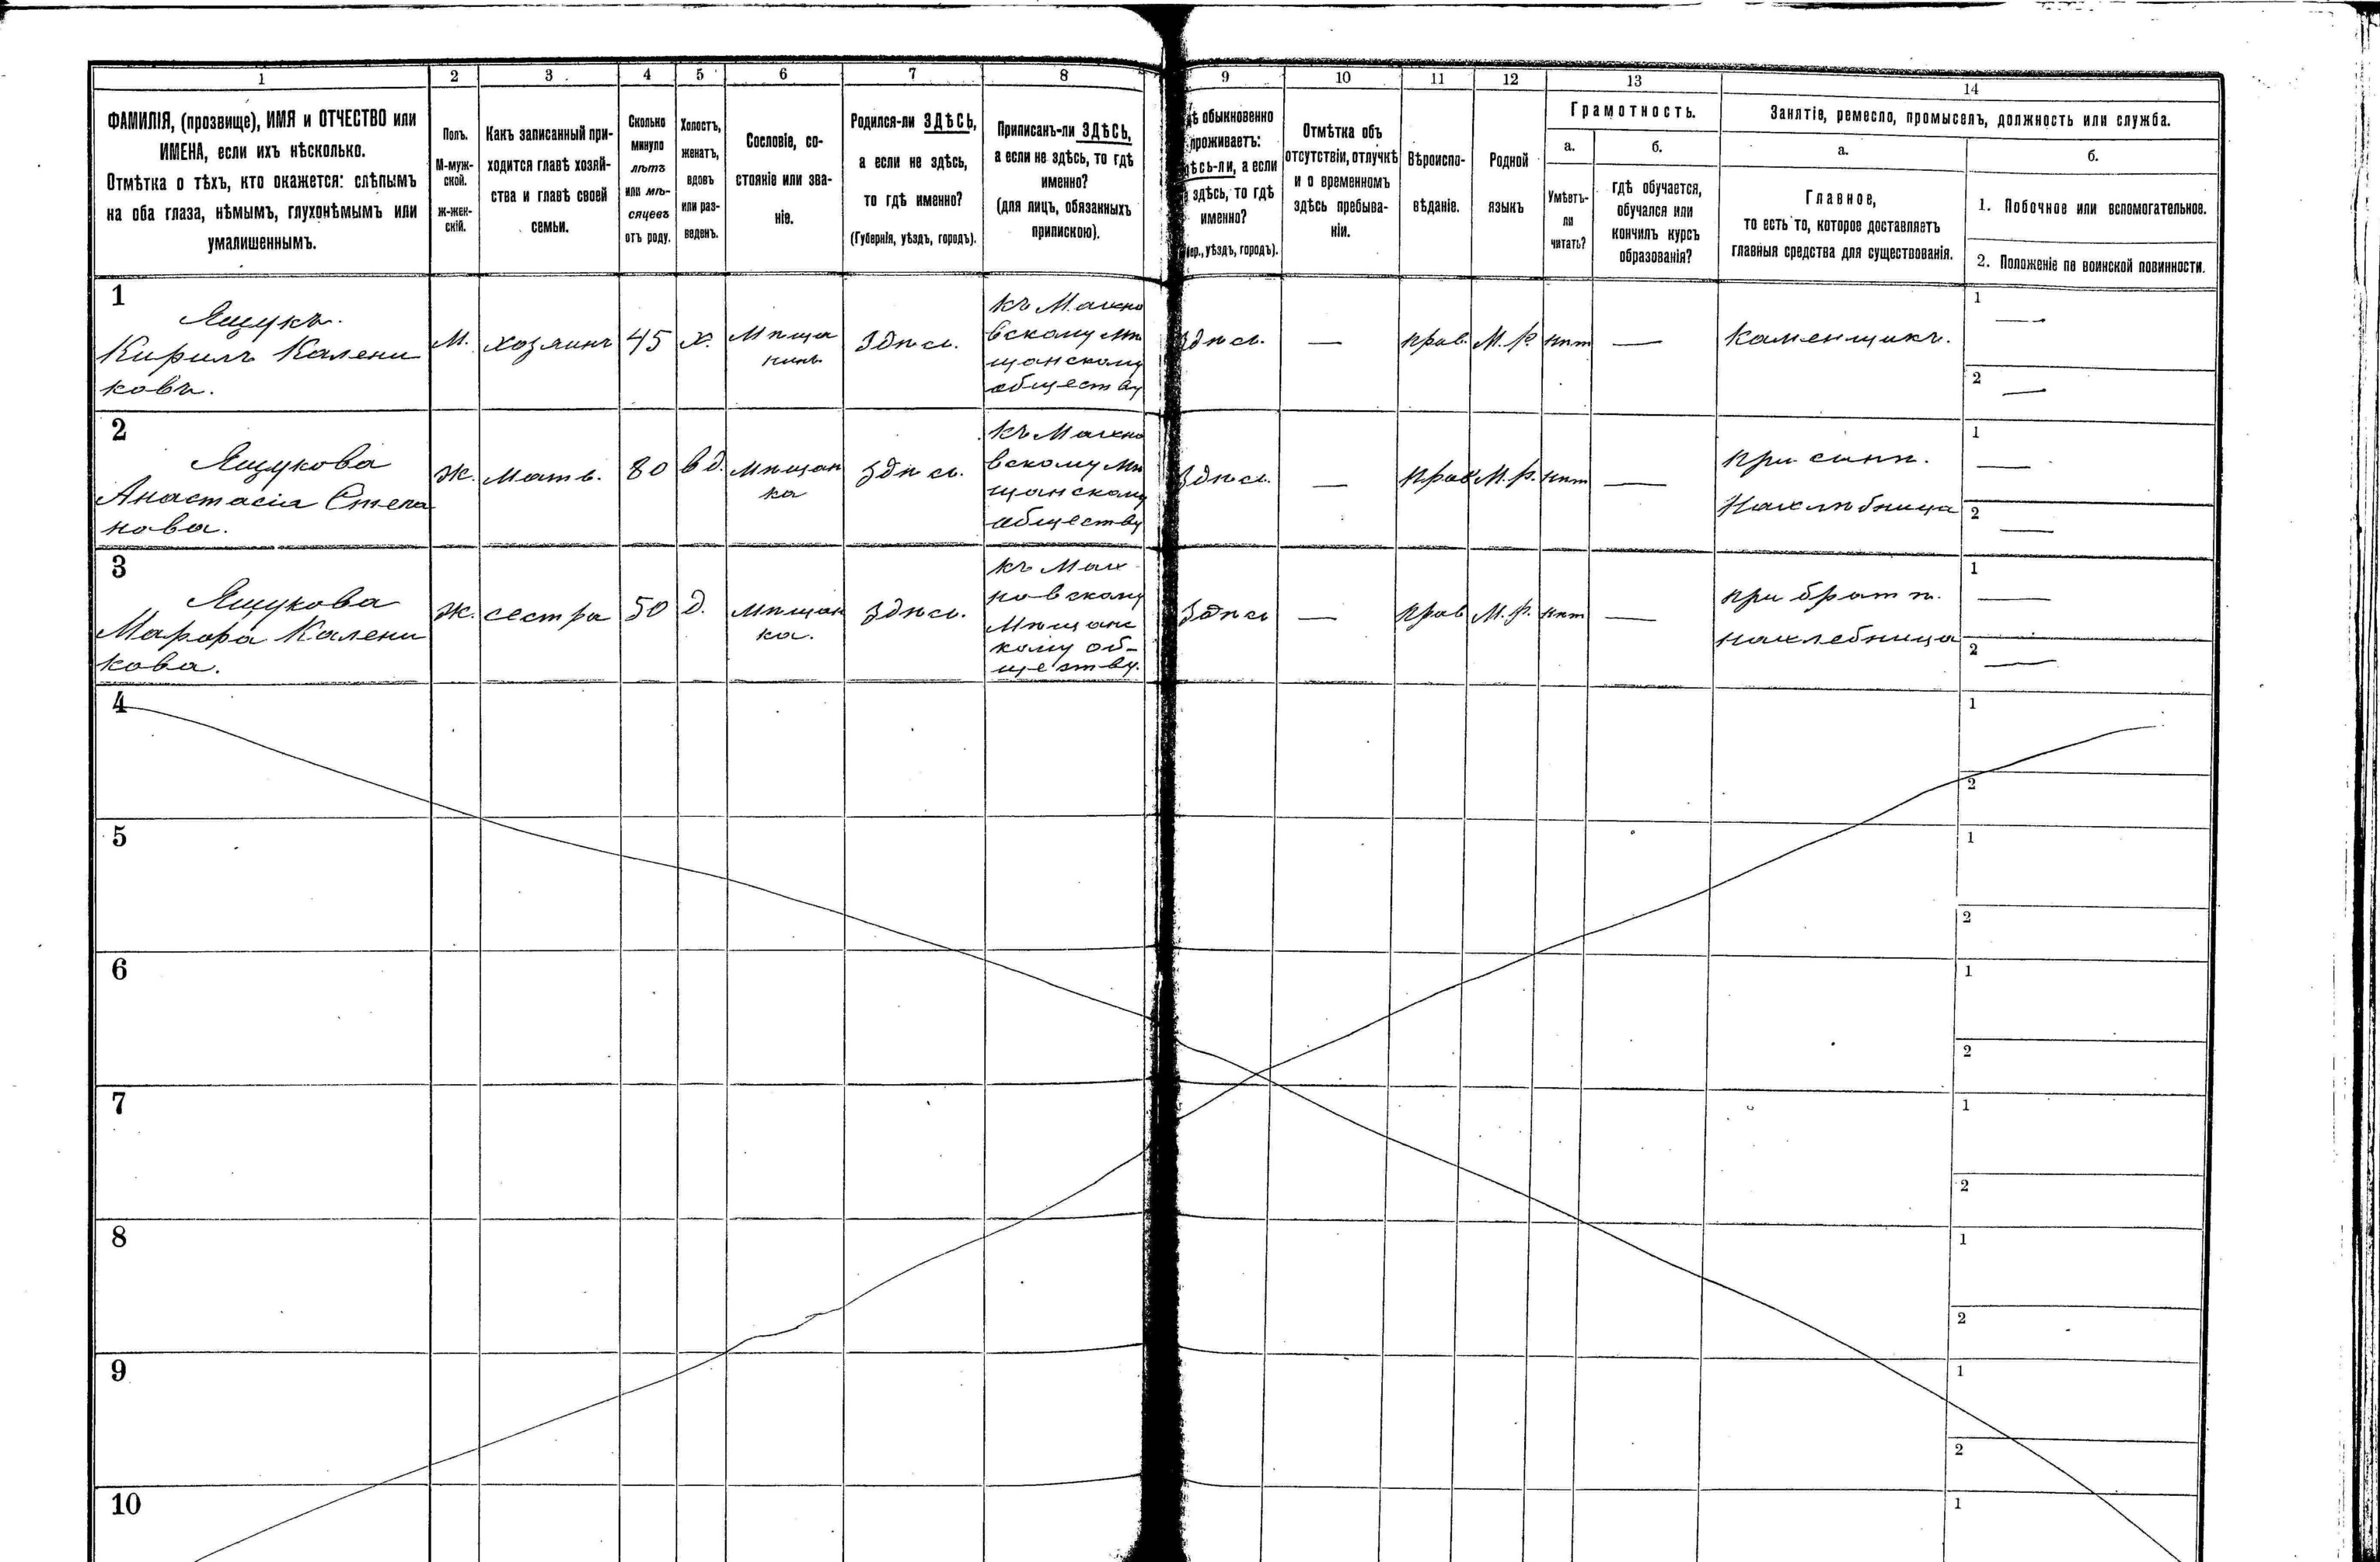 1 2 3 4 5 6 7 8 9 10 11 12 13 14
ФАМИЛІЯ, (прозвище), ИМЯ и ОТЧЕСТВО или
ИМЕНА, если ихъ нѣсколько.
Отмѣтка о тѣхъ, кто окажется: слѣпымъ
на оба глаза, нѣмымъ, глухонѣмымъ или
умалишеннымъ.
Полъ.
М-муж-
ской.
ж-жен-
скій.
Какъ записанный при-
ходится главѣ хозяй-
ства и главѣ своей
семьи.
Сколько
минуло
лѣтъ
или мѣ-
сяцевъ
отъ роду.
Холостъ,
женатъ,
вдовъ
или раз-
веденъ.
Сословіе, со-
стояніе или зва-
ніе.
Родился-ли ЗДѢСЬ,
а если не здѣсь,
то гдѣ именно?
(Губернія, уѣздъ, городъ).
Приписанъ-ли ЗДѢСЬ,
а если не здѣсь, то гдѣ
именно?
(для лицъ, обязанныхъ
припискою).
обыкновенно
проживаетъ:
а если
здѣсь, то гдѣ
именно?
уѣздъ, городъ).
Отмѣтка объ
отсутствіи, отлучкѣ
и о временномъ
здѣсь пребыва-
ніи.
Вѣроиспо-
вѣданіе.
Родной
языкъ
Грамотность.
а.
Умѣетъ-
ли
читать?
б.
гдѣ обучается,
обучался или
кончилъ курсъ
образованія?
Занятіе, ремесло, промыселъ, должность или служба.
а.
Главное,
то есть то, которое доставляетъ
главныя средства для существованія.
б.
1. Побочное или вспомогательное.
2. Положеніе по воинской повинности.
1
Ящукъ.
Кирилъ Калени
ковъ.
М.
хозяинъ
45
х.
Мѣща
нинъ
Здѣсь.
къ Махно
вскому мѣ
щанскому
обществу
Здѣсь.
—
прав.
М. р.
нѣт
—
Каменщикъ.
1 —
2 —
2
Ящукова
Анастасія Степа
нова.
Ж.
Мать.
80
вд.
Мѣщан
ка
Здѣсь.
къ Махно
вскому мѣ
щанскому
обществу
Здѣсь.
—
прав
М. р.
нѣт
—
при сынѣ.
Нахлѣбница
1 —
2 —
3
Ящукова
Марфа Калени
кова.
Ж.
сестра
50
д.
мѣщан
ка.
Здѣсь.
къ Мах
новскому
Мѣщанс
кому об-
ществу.
Здѣсь
—
прав
М. р.
нѣт
—
при братѣ.
нахлебница
1 —
2 —
4
1
2
5
1
2
6
1
2
7
1
2
8
1
2
9
1
2
10
1